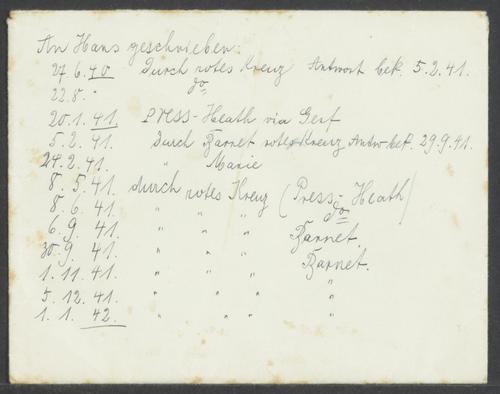 An Hans geschrieben:
27.6.40 Durch rotes Kreuz Antwort bek. 5.2.41.
22.8. " do
20.1.41. PRESS-Heath via Genf
5.2.41 Durch Barnet rotes Kreuz Antw. bek. 29.9.41.
24.2.41. " Marie
8.5.41. durch rotes Kreuz (Press-Heath)
8.6.41. " " " do
6.9.41. " " " Barnet.
30.9.41. " " " Barnet.
1.11.41. " " " "
5.12.41. " " " "
1.1.42. " " " "